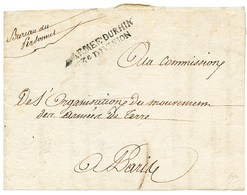 Bureau du
Personnel
ARMEE DU RHIN
A la Commission
De l'Organisation du mouvement
des Armées de Terre
A Paris